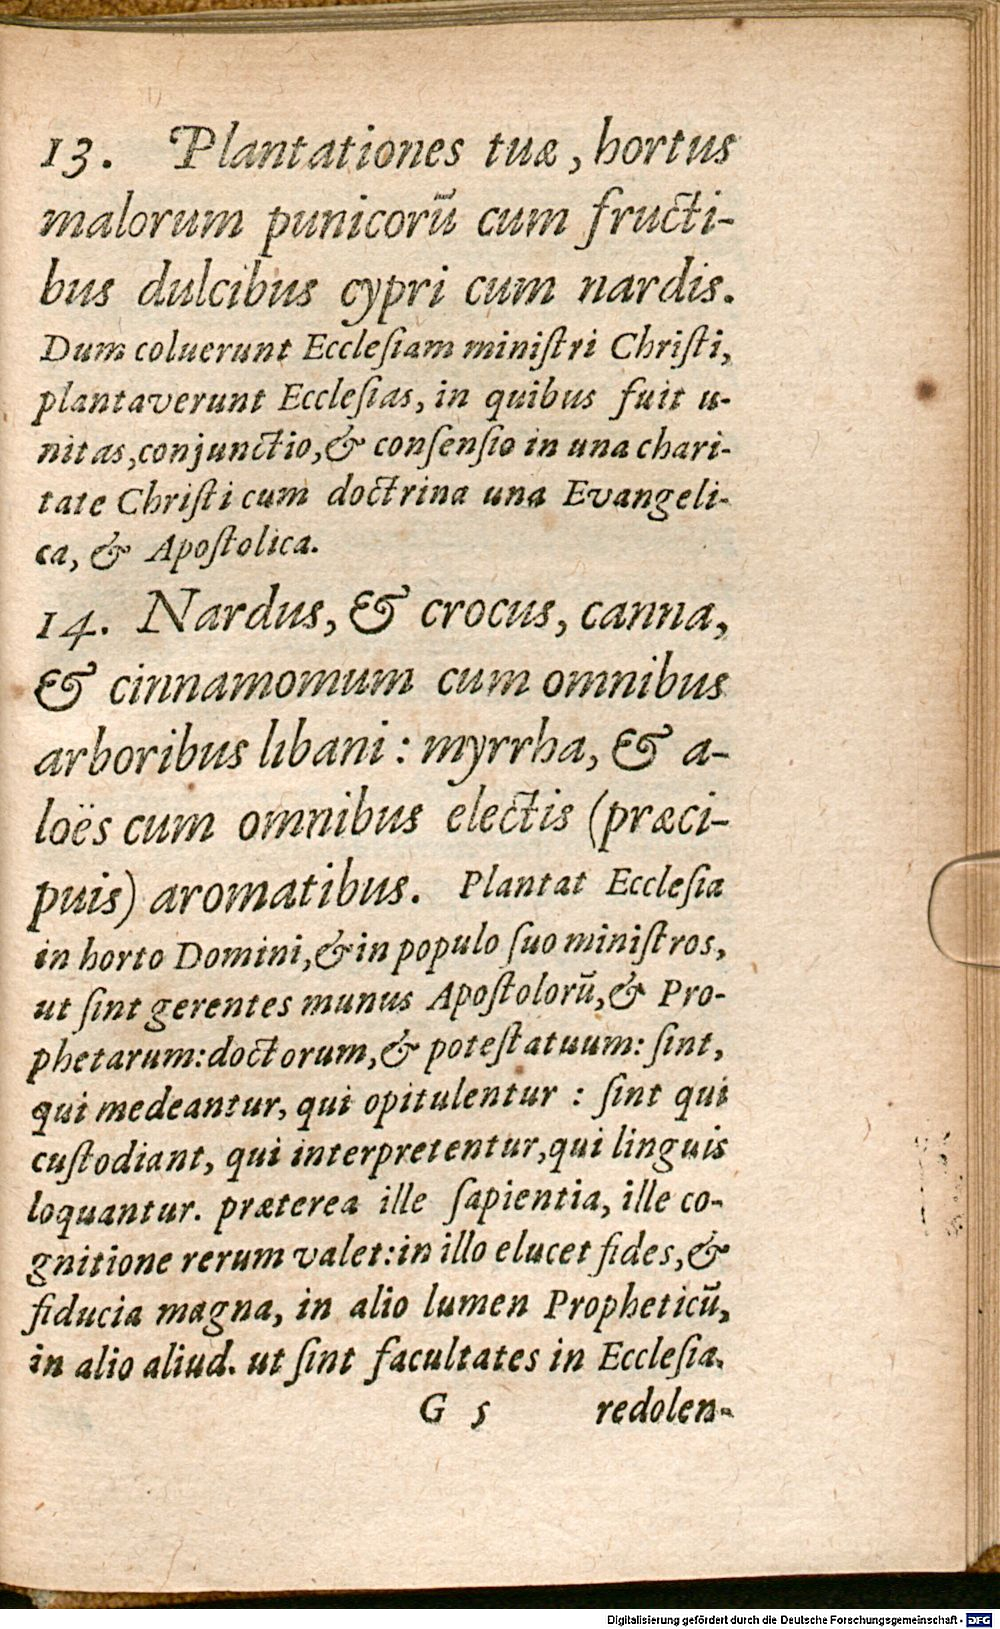 13. Plantationes tuæ, hortus
malorum punicorū cum fructi-
bus dulcibus cypri cum nardis.
Dum coluerunt Eccleſiam miniſtri Chriſti,
plantaverunt Eccleſias, in quibus fuit u-
nitas, conjunctio, & conſenſio in una chari-
tate Chriſti cum doctrina una Evangeli-
ca, & Apoſtolica.
14. Nardus, & crocus, canna,
& cinnamomum cum omnibus
arboribus libani : myrrha, & a-
loës cum omnibus electis (præci-
puis) aromatibus. Plantat Eccleſia
in horto Domini, & in populo ſuo miniſtros,
ut ſint gerentes munus Apoſtolorū, & Pro-
phetarum: doctorum, & poteſtatuum: ſint,
qui medeantur, qui opitulentur : ſint qui
cuſtodiant, qui interpretentur, qui linguis
loquantur. præterea ille ſapientia, ille co-
gnitione rerum valet: in illo elucet fides, &
fiducia magna, in alio lumen Propheticū,
in alio aliud. ut ſint facultates in Eccleſia.
G 5 redolen-
Digitalisierung gefördert durch die Deutsche Forschungsgemeinschaft - DFG